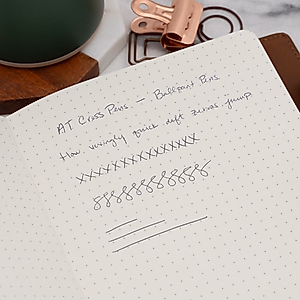 AT Cross Pens — Ballpoint Pens
How vexingly quick daft zebras jump
XXXXXXXXXXXXXX
888888888888